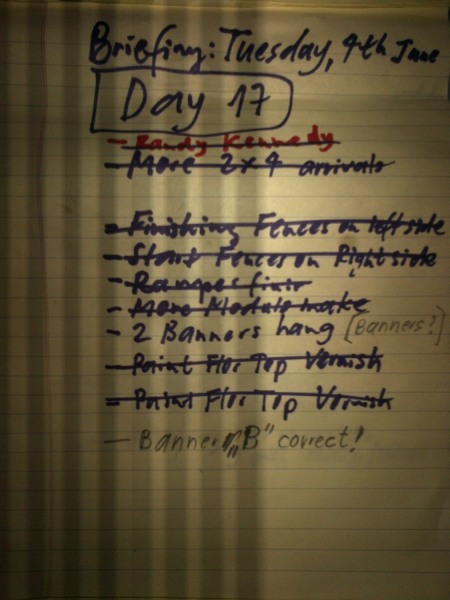 Briefing: Tuesday, 9th June
Day 17
- Randy Kennedy
- More 2x4 arrivals
- Finishing Fences on left side
- Start Fences on Right side
- Ramper finir
- More Module make
- 2 Banners hang [Banners?]
- Paint Flor Top Vernish
- Paint Flor Top Vernish
- Banner "B" correct!